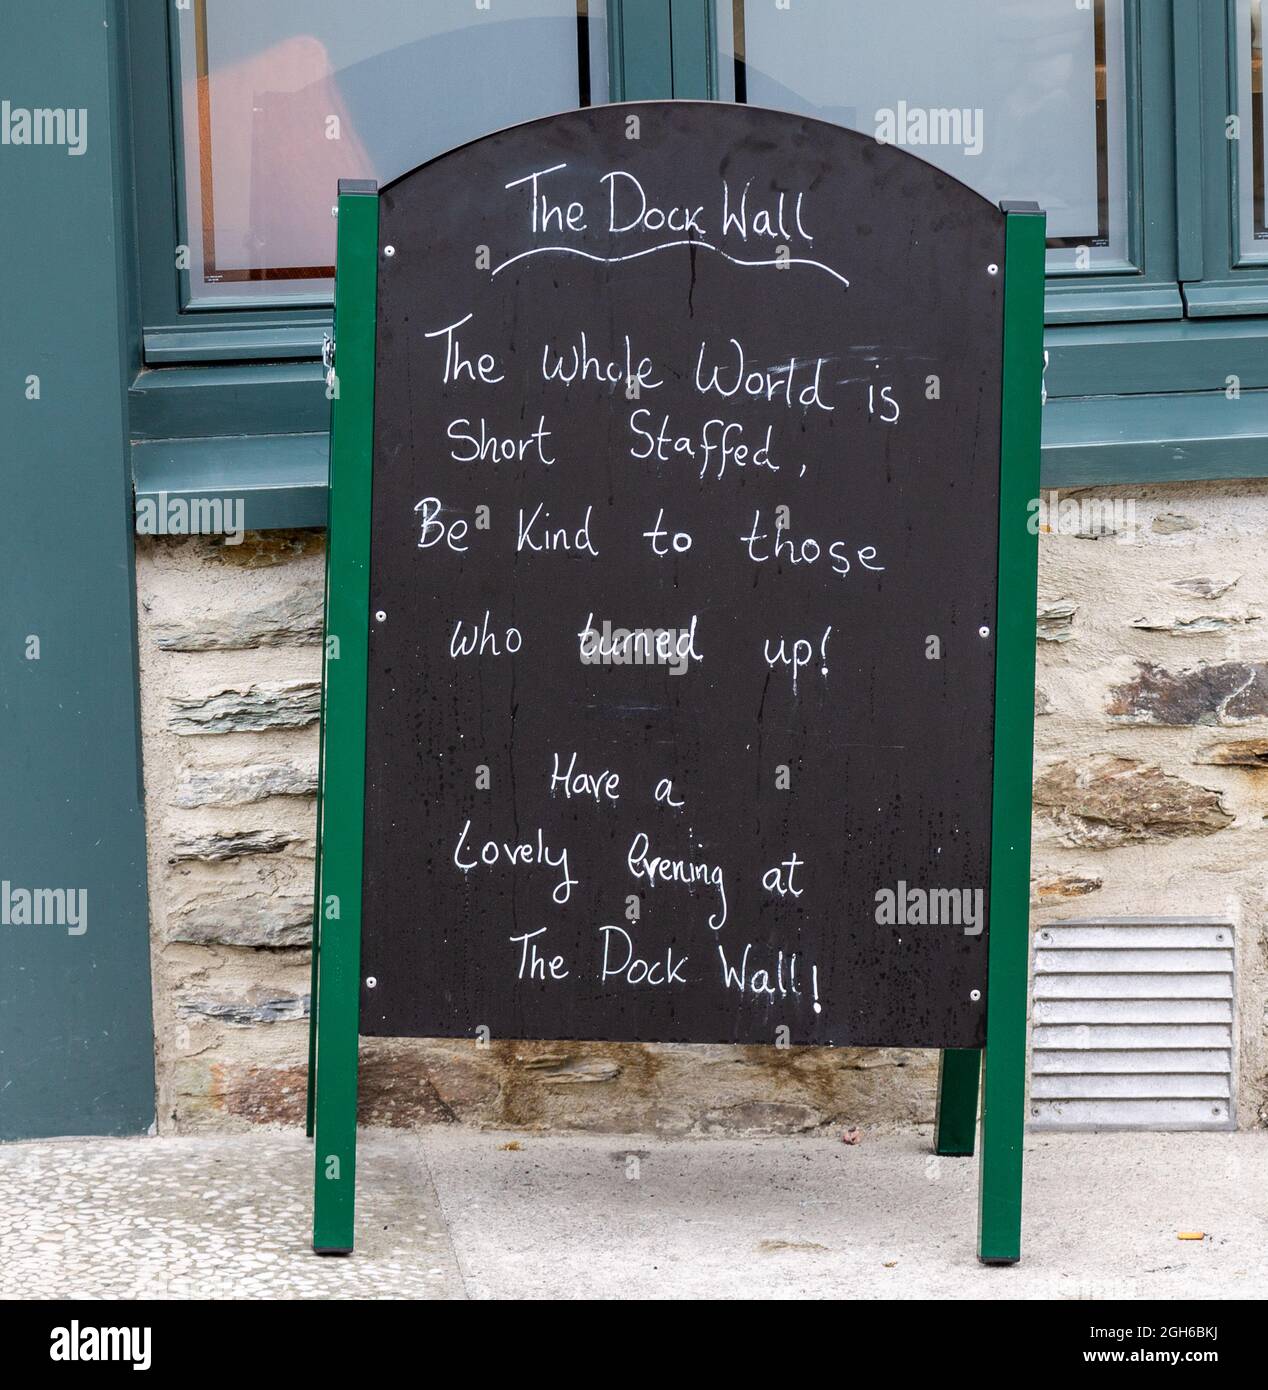 The Dock Wall
The Whole World is
Short Staffed,
Be Kind to those
who turned up!
Have a
Lovely evening at
The Dock Wall!
alamy
alamy
alamy
alamy
alamy
alamy
alamy
Image ID: 2GH6BKJ
www.alamy.com